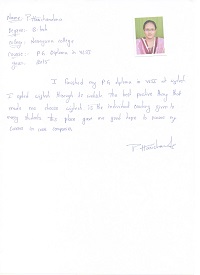 Name: P. Harichandana
Degree: B.tech
College: Narayana college
Course: P.G Diploma in VLSI
Year: 2015
I finished my P.G diploma in VLSI at
I opted through to website the best positive thing that
made me choose is the individual counseling given to
every students this place gave me good hope to pursue my
career in core companies
P. Harichandana